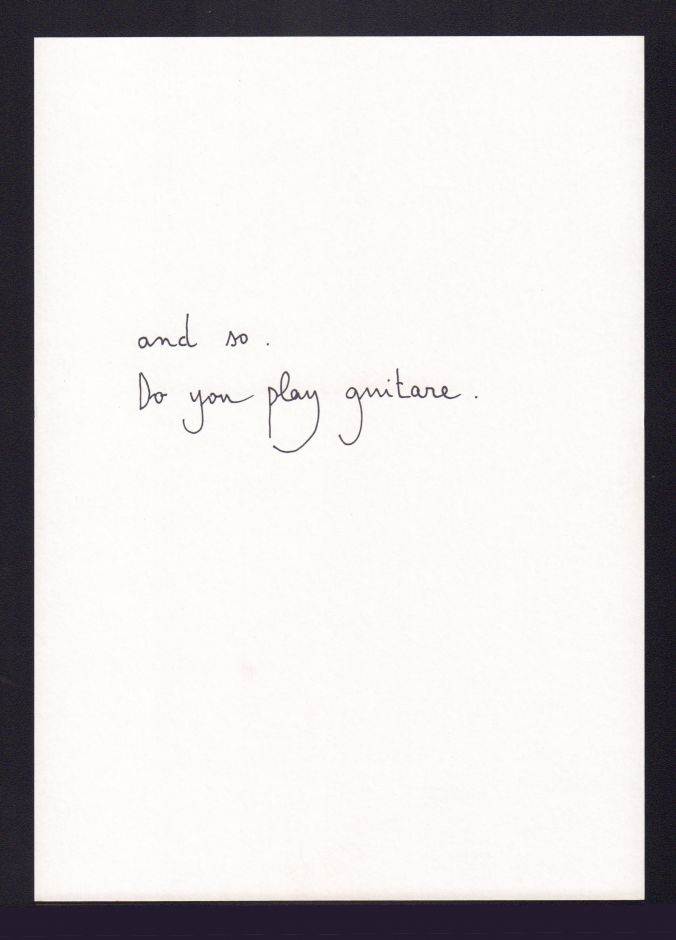 and so.
Do you play guitare.